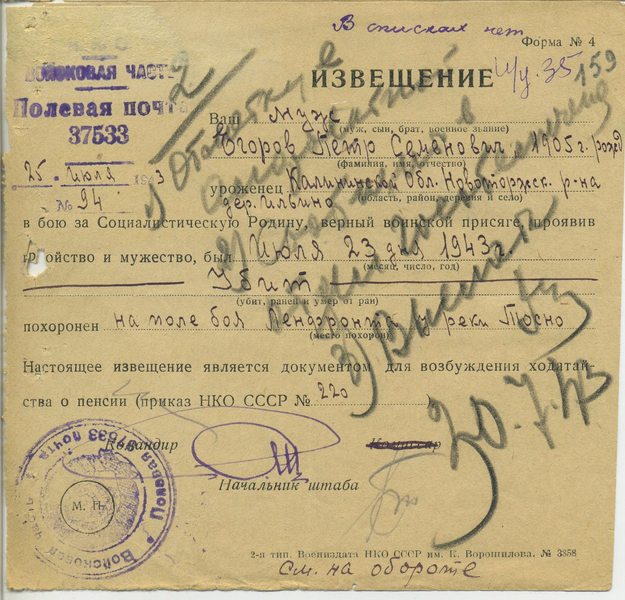 В списках нет
Форма № 4
ВОЙСКОВАЯ ЧАСТЬ
Полевая почта
37533
25 июля 1943
№ 94
ИЗВЕЩЕНИЕ
И/у. 35
159
Ваш муж
(муж, сын, брат, военное звание)
Егоров Петр Семенович 1905 г. рожд
(фамилия, имя, отчество)
уроженец Калининской Обл. Новоторжск. р-на
(область, район, деревня и село)
дер. Ильвино
в бою за Социалистическую Родину, верный воинской присяге, проявив
геройство и мужество, был Июля 23 дня 1943 г.
(месяц, число, год)
Убит
(убит, ранен и умер от ран)
похоронен на поле боя Ленфронта у реки Тосно
(место похорон)
Настоящее извещение является документом для возбуждения ходатай-
ства о пенсии (приказ НКО СССР № 220 ).
Командир
Комиссар
Начальник штаба
М. П.
Войсковая часть Полевая почта 37533
2
3) Выслать
30.7.43
2-я тип. Воениздата НКО СССР им. К. Ворошилова. № 3358
См. на обороте